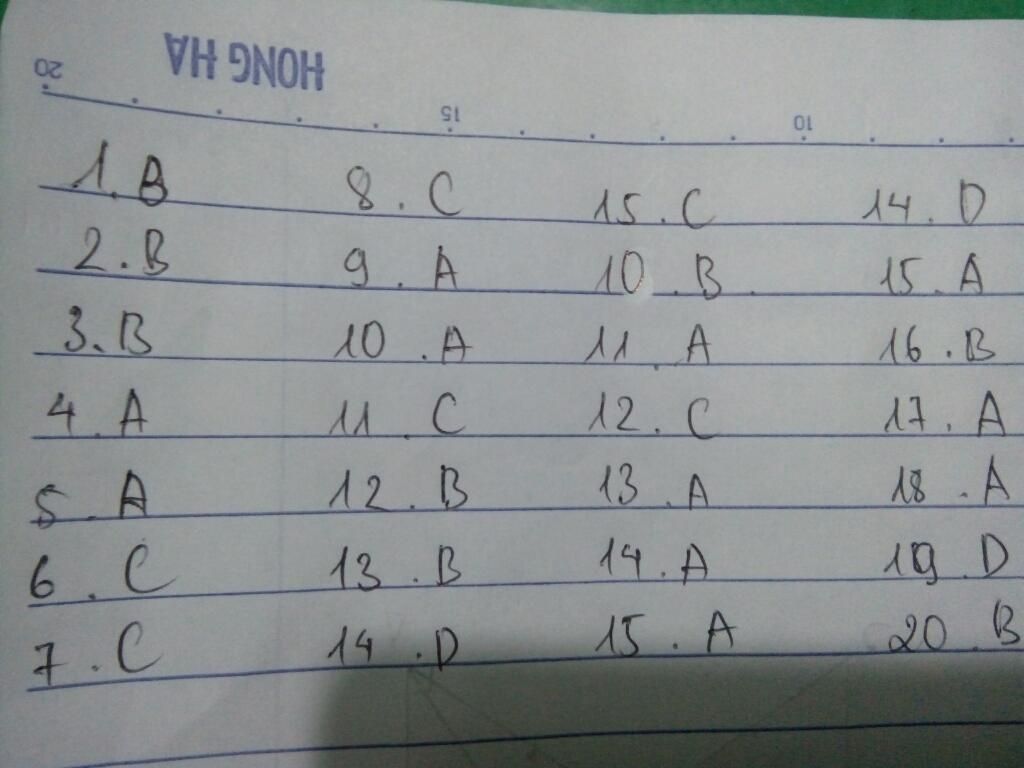 HONG HA
20 15 10
1. B 8. C 15. C 14. D
2. B 9. A 10. B. 15. A
3. B 10. A 11. A 16. B
4. A 11. C 12. C 17. A
5. A 12. B 13. A 18. A
6. C 13. B 14. A 19. D
7. C 14. D 15. A 20. B